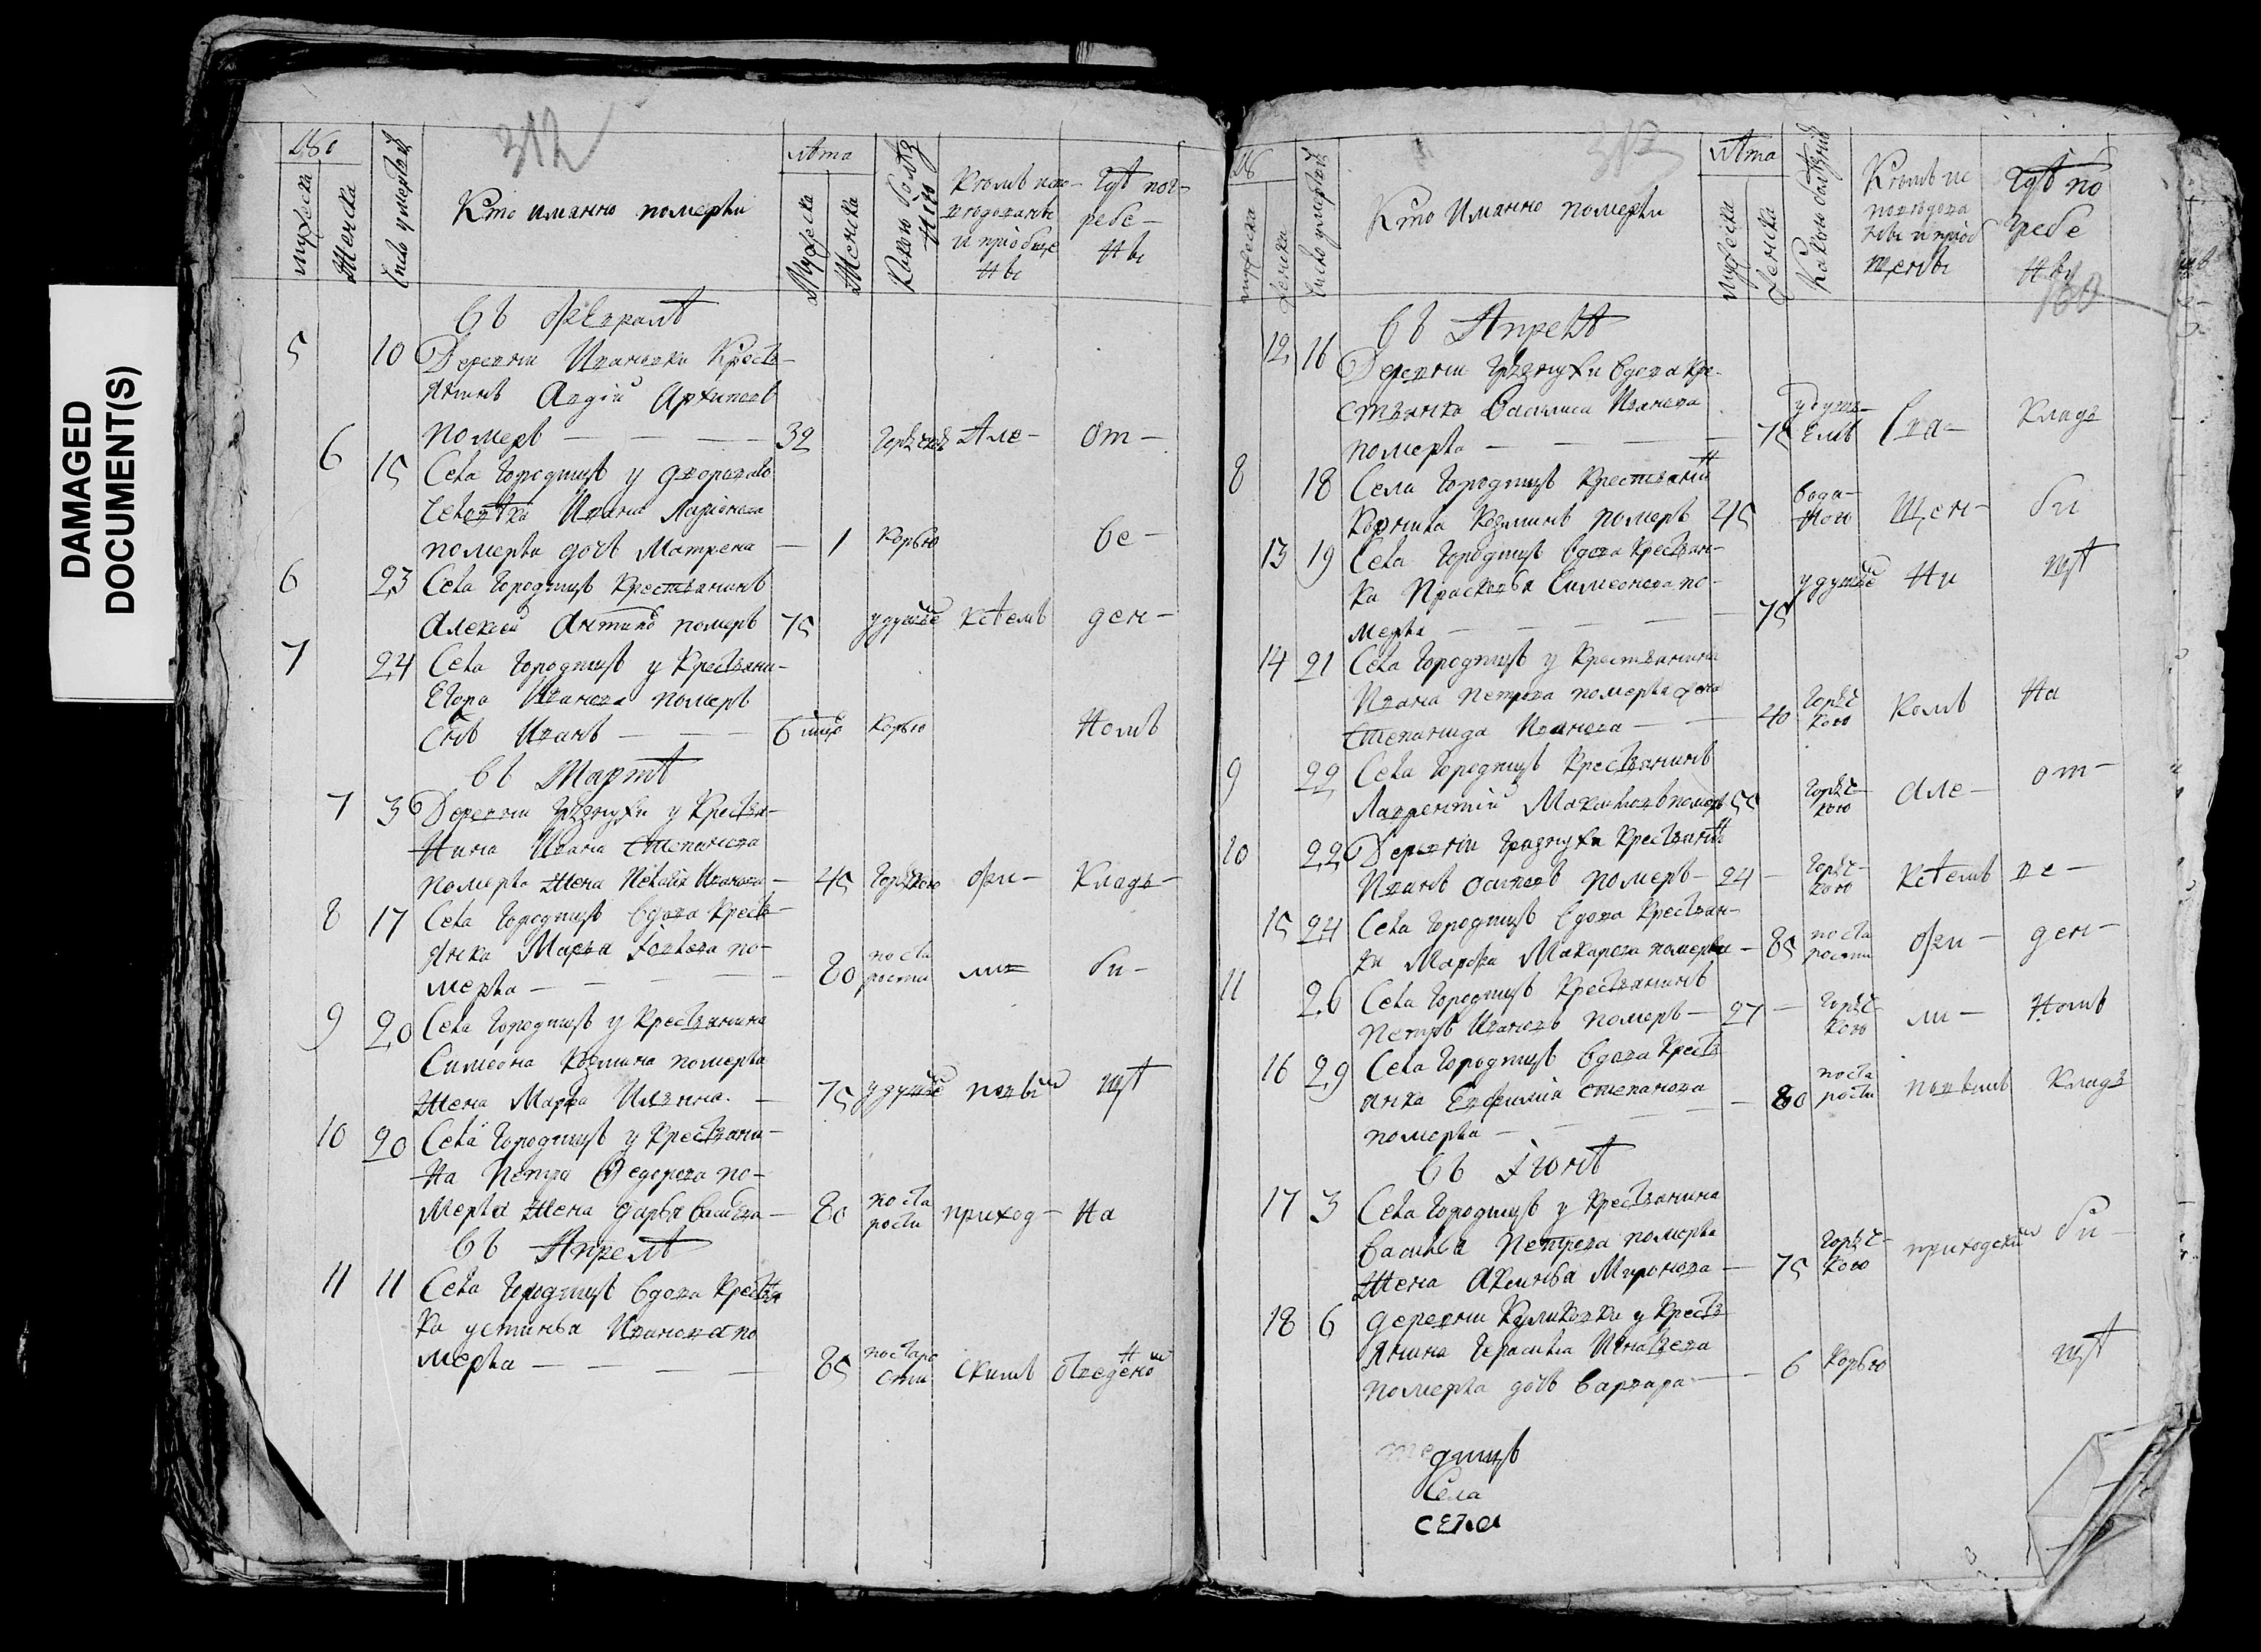 DAMAGED
DOCUMENT(S)
312
№
мужеска
женска
число умертвий
Кто имянно померли
лѣта
Мужеска
Женска
Какою болѣзнию
Кѣмъ исповѣдованы и приобщены
Гдѣ погребены
въ Февралѣ
5 10 Деревни Ивановки Кресть-
янинъ Авдѣй Архиповъ
померъ — — — 32 горячкою Але- от-
6 15 Села Городищъ у дворового
человѣка Ивана Ларионова
померла дочь Матрена — 1 корью ве-
6 23 Села Городищъ крестьянинъ
Алексей Антипо померъ 75 удушье ксѣемъ ден-
7 24 Села Городищъ у крестьяни-
Егора Иванова померъ
Сынъ Иванъ — — 6 мцо корью номъ
въ Мартѣ
7 3 Деревни у крестья-
нина Ивана Степанова
померла жена Наталья Иванова — 45 горячкою Фи- кладъ-
8 17 Села Городищъ вдова кресть-
янка Марья Іовлева по-
мерла — — — 80 по ста рости ли- би-
9 20 Села Городищъ у крестьянина
Симеона Козмина померла
жена Марфа Ильина. — 75 удушье повы щѣ
10 20 Села Городищъ у крестьяни-
на Петра Федорова по-
мерла жена Дарья Васильева — 80 по ста рости приход- на
въ Апрелѣ
11 11 Села Городищъ вдова крестьян
ка Устинья Иванова по
мерла — — — 85 постаро сти скимъ отведеном
№
мужеска
женска
число умертвий
313
Кто имянно померли
лѣта
мужеска
женска
Какою болѣзнию
Кѣмъ исповѣдованы и приобщены
Гдѣ погребены
160
въ Апрелѣ
12 16 Деревни вдова кре-
стьянка Василиса Иванова
померла — — — 75 удушьемъ Свя- кладъ
8 18 Села Городищъ крестьянинъ
Корнила Козминъ померъ 45 водяною щен- би
13 19 Села Городищъ вдова крестьян-
ка Прасковья Симеонова по-
мерла — — — 75 удушье ни щѣ
14 21 Села Городищъ у крестьянина
Ивана Петрова померла жена
Степанида Иванова — — 40 горячкою комъ на
9 22 Села Городищъ крестьянинъ
Лаврентий померъ 55 горячкою Але- от-
10 22 Деревни крестьянинъ
Иванъ Осиповъ померъ — 24 — горячкою ксѣемъ ве-
15 24 Села Городищъ вдова крестьян-
ка Марфа Макарова померла — 85 по ста рости Фи- ден-
11 26 Села Городищъ крестьянинъ
Петръ Ивановъ померъ — 27 — горячкою ли- номъ
16 29 Села Городищъ вдова кресть
янка Евфимия Степанова
померла — — — 80 поста рости повымъ кладъ
въ Іюнѣ
17 3 Села Городищъ у крестьянина
Василья Петрова померла
жена Аксинья Миронова — 75 горячкою приходским би-
18 6 деревни Куликовки у кресть
янина Герасима Игнатьева
померла дочь Варвара — — 6 корью щѣ
дищъ
Села
села